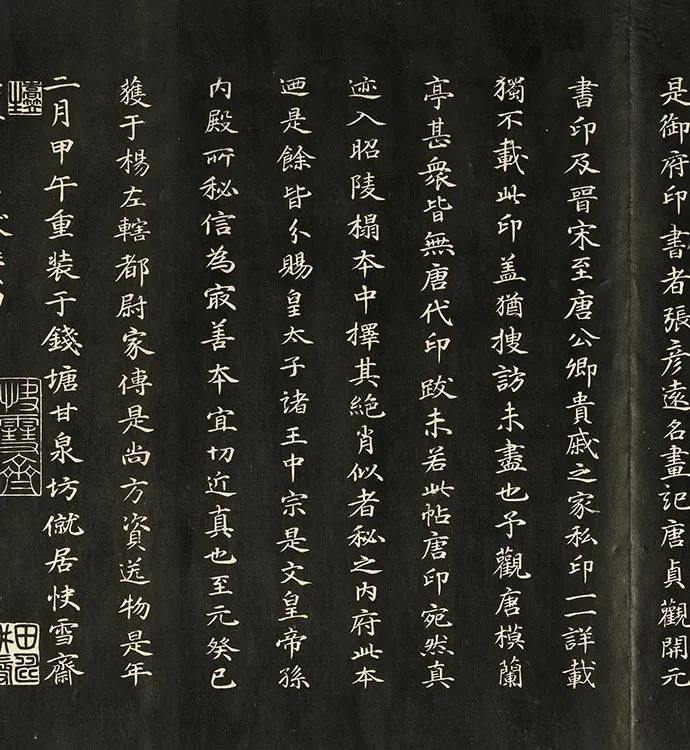 是御府印書者張彥遠名畫記唐貞觀開元
書印及晉宋至唐公卿貴戚之家私印一一詳載
獨不載此印盖猶搜訪未盡也予觀唐模蘭
亭甚衆皆無唐代印跋未若此帖唐印宛然真
迹入昭陵榻本中擇其絶肖似者秘之内府此本
迺是餘皆分賜皇太子诸王中宗是文皇帝孫
内殿所秘信為冣善本宜切近真也至元癸巳
獲于楊左轄都尉家傳是尚方資送物是年
二月甲午重装于錢塘甘泉坊僦居快雪齋
快雪齋